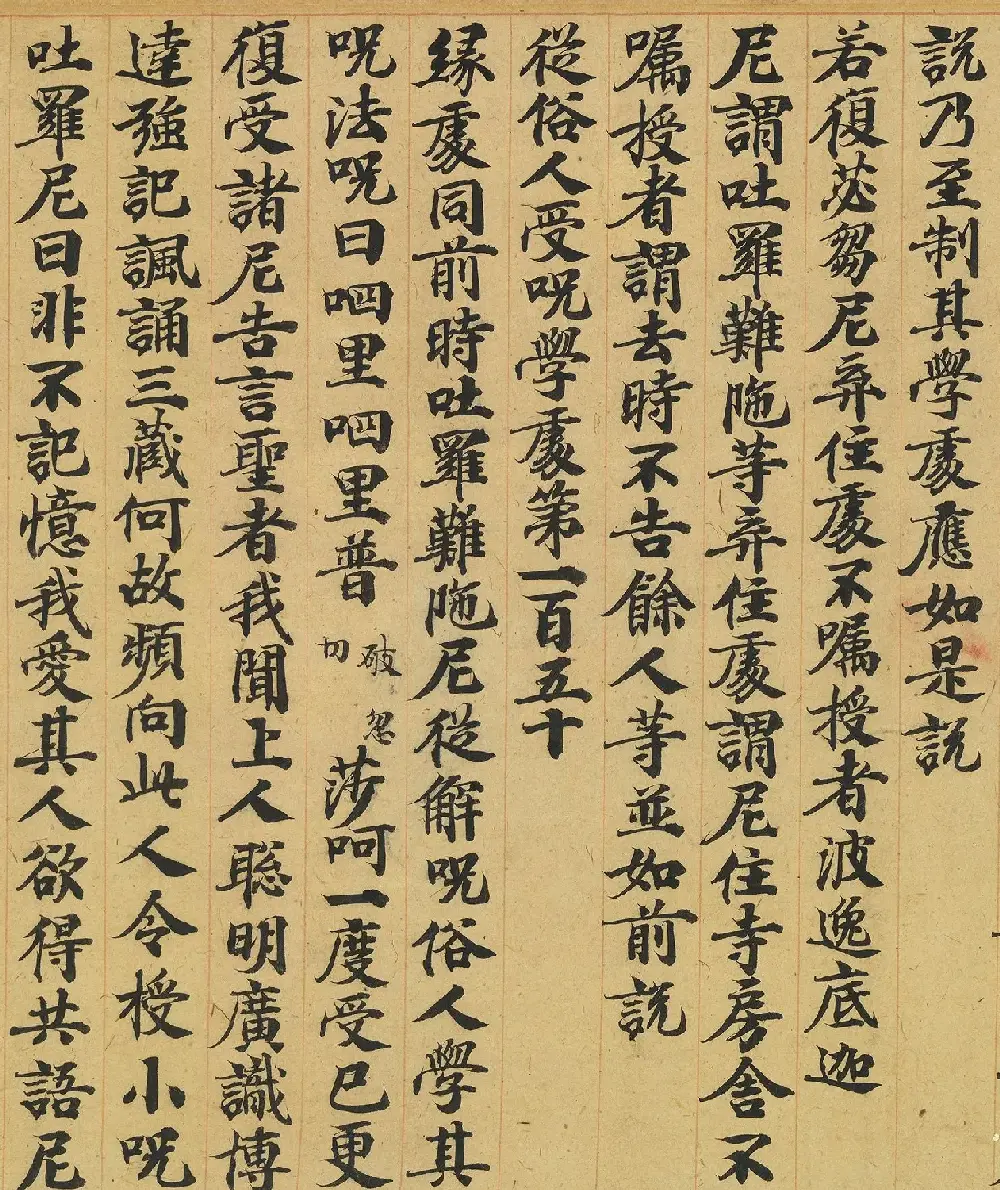 説乃至制其學處應如是説
若復苾芻尼弃住處不嘱授者波逸底迦
尼謂吐羅難陁等弃住處謂尼住寺房舍不
嘱授者謂去時不告餘人等並如前説
從俗人受呪學處第一百五十
緣處同前時吐羅難陁尼從解呪俗人學其
呪法呪曰呬里呬里普破忽切莎呵一度受已更
復受諸尼告言聖者我聞上人聡明廣識博
達強記諷誦三藏何故頻向此人令授小呪
吐羅尼曰非不記憶我愛其人欲得共語尼